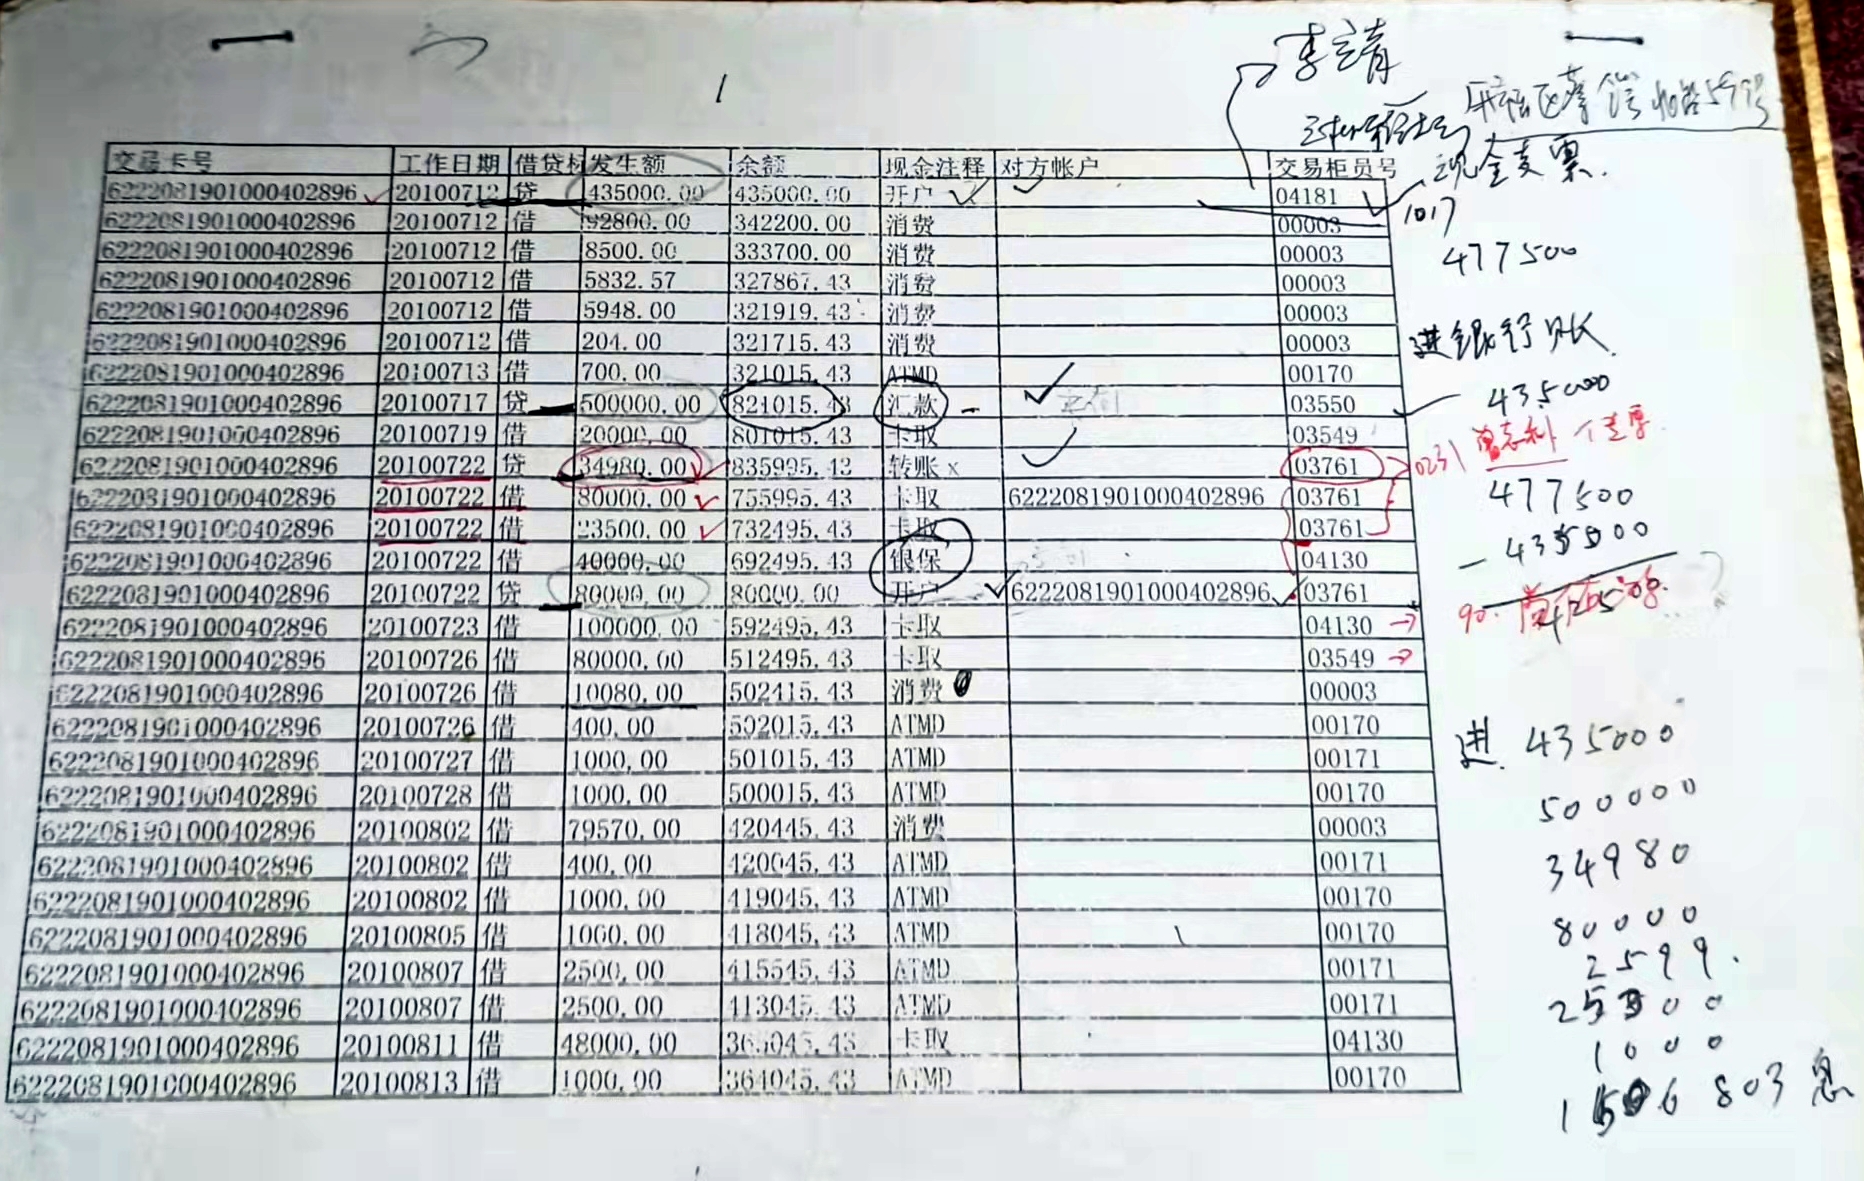 1
李立青
现金支票.
交易卡号 工作日期 借贷标 发生额 余额 现金注释 对方帐户 交易柜员号
6222081901000402896 20100712 贷 435000.00 435000.00 开户 04181
1017
6222081901000402896 20100712 借 92800.00 342200.00 消费 00003
6222081901000402896 20100712 借 8500.00 333700.00 消费 00003
477500
6222081901000402896 20100712 借 5832.57 327867.43 消费 00003
6222081901000402896 20100712 借 5948.00 321919.43 消费 00003
6222081901000402896 20100712 借 204.00 321715.43 消费 00003
进银行账
6222081901000402896 20100713 借 700.00 321015.43 ATMD 00170
6222081901000402896 20100717 贷 500000.00 821015.43 汇款 03550
435000
6222081901000402896 20100719 借 20000.00 801015.43 卡取 03549
6222081901000402896 20100722 贷 34980.00 835995.43 转账 x 03761
0231
6222081901000402896 20100722 借 80000.00 755995.43 卡取 6222081901000402896 03761
477500
6222081901000402896 20100722 借 23500.00 732495.43 卡取 03761
- 435000
6222081901000402896 20100722 借 40000.00 692495.43 银保 04130
6222081901000402896 20100722 贷 80000.00 80000.00 开户 6222081901000402896 03761
6222081901000402896 20100723 借 100000.00 592495.43 卡取 04130
6222081901000402896 20100726 借 80000.00 512495.43 卡取 03549
6222081901000402896 20100726 借 10080.00 502415.43 消费 00003
6222081901000402896 20100726 借 400.00 502015.43 ATMD 00170
进. 435000
6222081901000402896 20100727 借 1000.00 501015.43 ATMD 00171
6222081901000402896 20100728 借 1000.00 500015.43 ATMD 00170
500000
6222081901000402896 20100802 借 79570.00 420445.43 消费 00003
6222081901000402896 20100802 借 400.00 420045.43 ATMD 00171
34980
6222081901000402896 20100802 借 1000.00 419045.43 ATMD 00170
6222081901000402896 20100805 借 1000.00 418045.43 ATMD 00170
80000
6222081901000402896 20100807 借 2500.00 415545.43 ATMD 00171
2599.
6222081901000402896 20100807 借 2500.00 413045.43 ATMD 00171
6222081901000402896 20100811 借 48000.00 365045.43 卡取 04130
1000
6222081901000402896 20100813 借 1000.00 364045.43 ATMD 00170